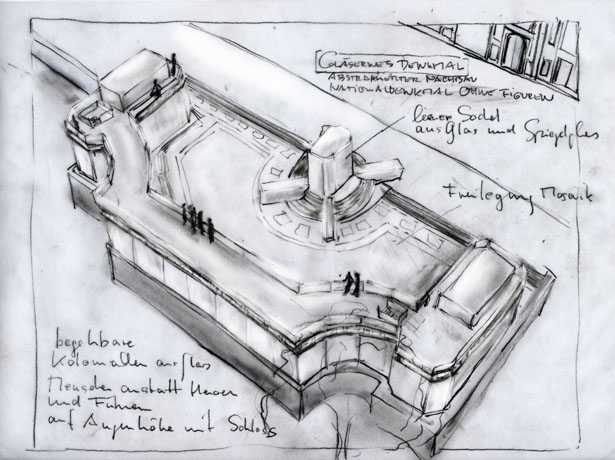 GLÄSERNES DENKMAL
ABSTRAHIERTER NACHBAU
NATIONALDENKMAL OHNE FIGUREN
leerer Sockel
aus Glas und Spiegelglas
Freilegung Mosaik
begehbare
Kolonnaden aus Glas
Menschen anstatt Heroen
und Führer
auf Augenhöhe mit Schloss